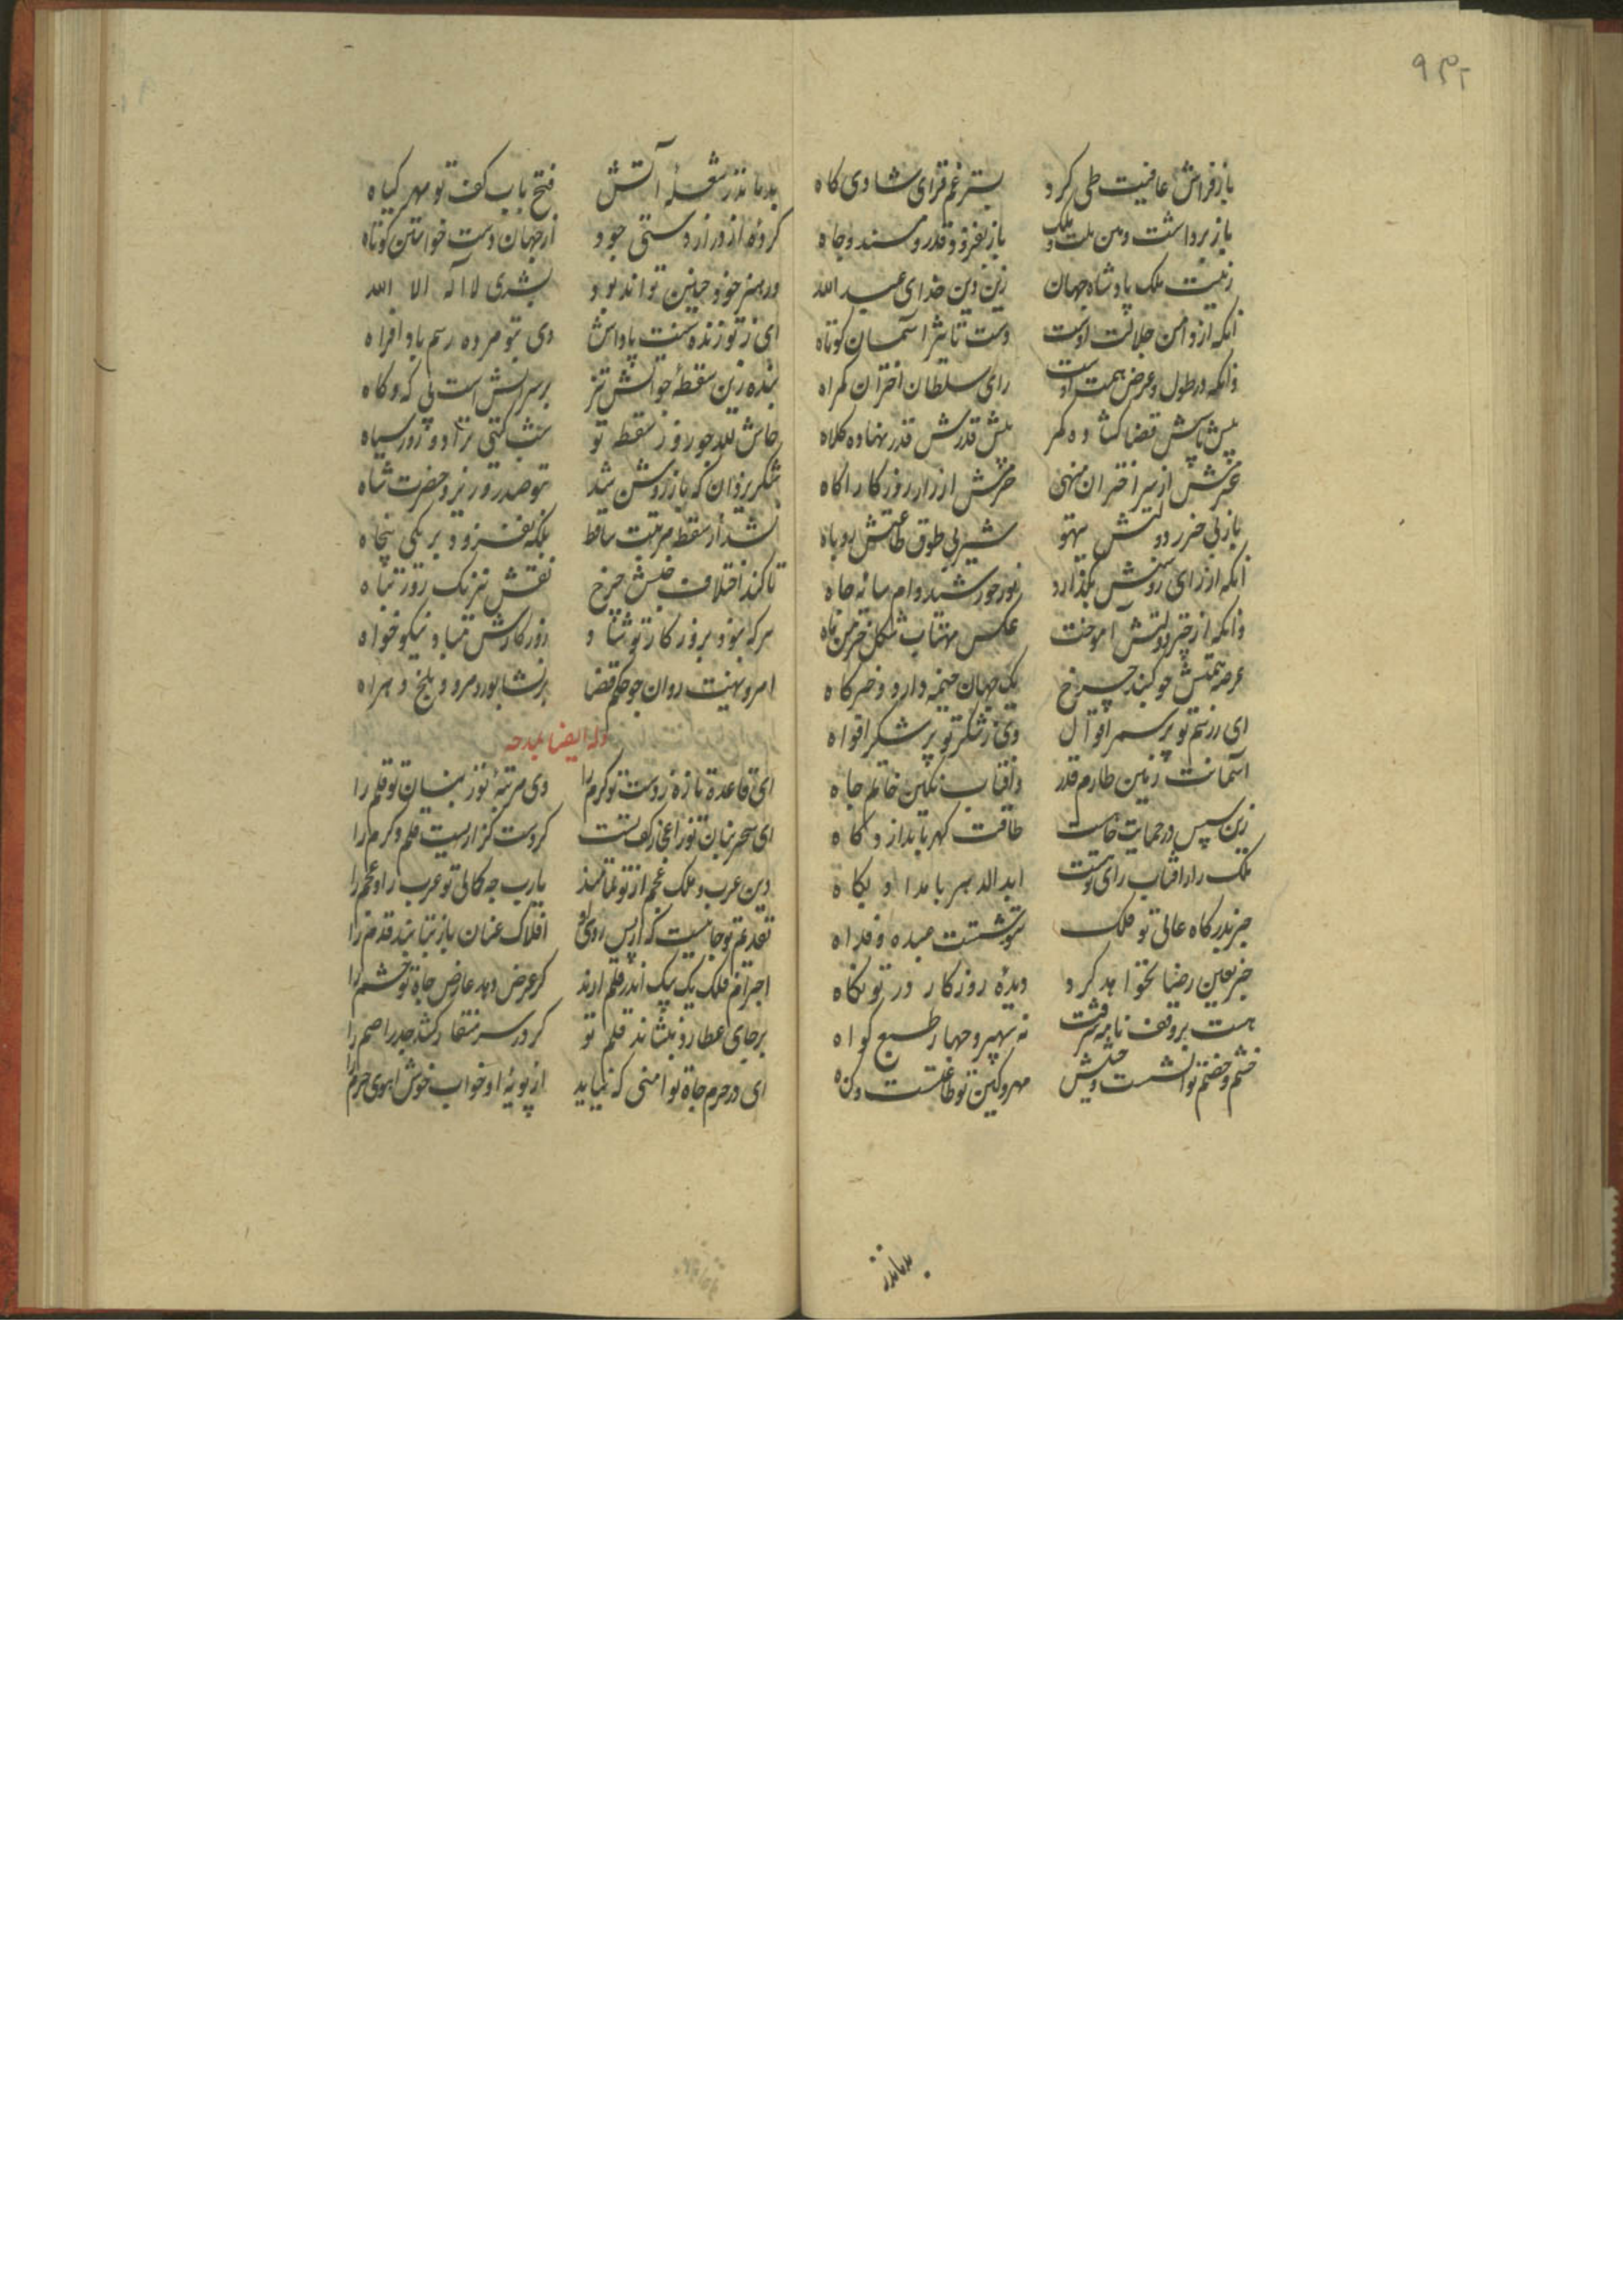 ۹۳۲
باز فراش عافیت طی کرد بستر غم فزای شادی کاه
باز برداشت دین ملت و ملک باز بفزود قدر و مسند و جاه
زینت ملک پادشاه جهان زین دین خدای عبدالله
آنکه از دامن جلالت اوست دست تاثیر آسمان کوتاه
وانکه در طول و عرض همت اوست رای سلطان اختران کمراه
پیش باسش قضا کشاده کمر پیش قدرش قدر نهاده کلاه
عزمش از سر اختران منهی حزمش از راز روزکار آکاه
باز بی خرز دولتش تیهو شیر بی طوق طاعتش روباه
آنکه از رای روشنش بگذارد نور خورشید وام سایه جاه
وانکه از چتر دولتش آموخت عکس مهتاب شکل خرمن ماه
عرصه همتش چو کنبد چرخ یک جهان خیمه دارد و خرکاه
ای ز رسم تو پر سمر اقوال وی ز شکر تو پر شکر افواه
آسمانت زمین طارم قدر وآفتابت نکین خاتم جاه
زین سپس در حمایت جاهت طاقت کهربا بدارد کاه
ملک را ز آفتاب رای تو هست ابد الدهر بامداد پکاه
جز بدرکاه عالی تو فلک ننوشتست عبده و فداه
جز بعین رضا نخواهد کرد دیده روزکار در تو نکاه
هست بر وفق نامه شرفت نه سپهر و چهار طبع کواه
خشم و خصم تو آتشست و حشیش مهر و کین تو طاعتست و کناه
بدماند ز
بدماند ز شعله آتش فتح باب کف تو مهر کیاه
کرده از دراز دستی جود از جهان دست خواستن کوتاه
ور هنر خود چنین تواند بود بشری لا اله الا الله
ای ز تو زنده سنت پاداش وی بتو مرده رسم بادافراه
بنده زین سقطه چو آتش تیز بر سر آتش است بی که و کاه
حاش لله چو روز سقطه تو شب کیتی نزاد روز سیاه
شکر یزدان که باز روشن شد بتو صدر وزیر و حضرت شاه
نشد از سقطه مرتبت ساقط بلکه بفزود بر یکی پنجاه
تا کند اختلاف جنبش چرخ نقش نیرنک روز تباه
هر که نبود بروز کار تو شاد روزکارش مباد نیکوخواه
امر و نهیت روان چو حکم قضا بر نشابور و مرو و بلخ و هراه
وله ایضا یمدحه
ای قاعده تازه ز دست تو کرم را وی مرتبه نو ز بنان تو قلم را
ای سحر بنان تو ز اعجاز کف تست کز دست کزاریست قلم و کرم را
دین عرب و ملک عجم از تو تمامند یارب چه کمالی تو عرب را و عجم را
تقدیم تو جاییست که از پس روی او افلاک عنان باز نتابند قدم را
اجرام فلک یک بیک اندر قلم ارند کر عرض دهد عارض جاه تو حشم را
بر جای عطارد بنشاند قلم تو کر در سر منقار کشد جذر اصم را
ای در حرم جاه تو امنی که نیاید از پویه او خواب خوش آهوی حرم را